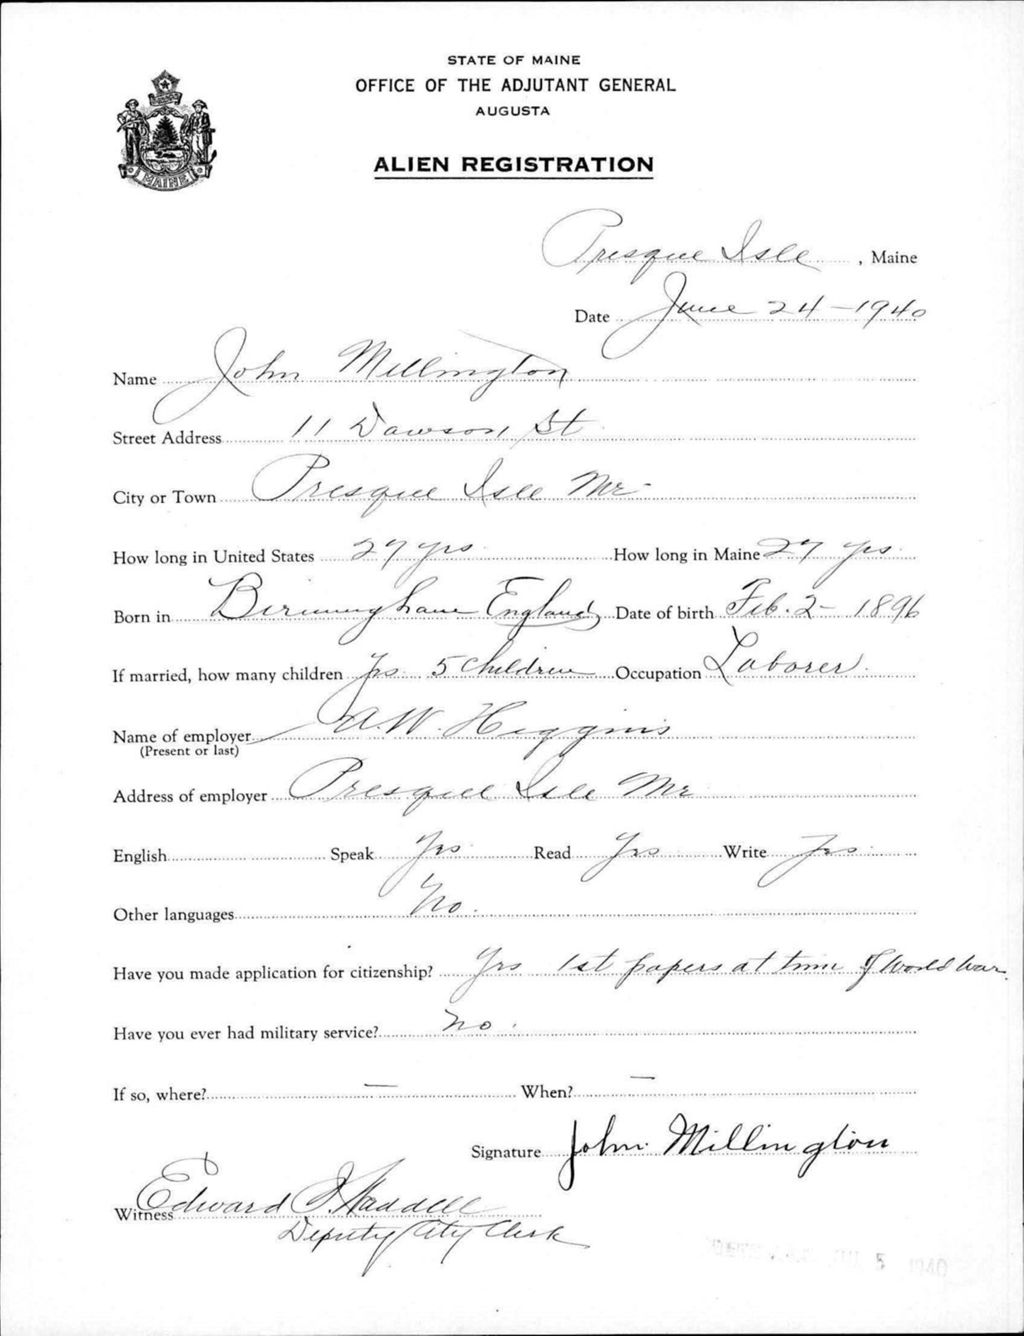 STATE OF MAINE
OFFICE OF THE ADJUTANT GENERAL
AUGUSTA
ALIEN REGISTRATION
MAINE
Presque Isle, Maine
Date June 24-1940
Name John Millington
Street Address 11 Dawson St
City or Town Presque Isle Me-
How long in United States 27 yrs How long in Maine 27 yrs
Born in Birmingham England Date of birth Feb. 2- 1896
If married, how many children Yes 5 Children Occupation Laborer
Name of employer A.W. Higgins
(Present or last)
Address of employer Presque Isle Me
English Speak Yes Read Yes Write Yes
Other languages No.
Have you made application for citizenship? Yes 1st papers at time of World War.
Have you ever had military service? No.
If so, where? — When? —
Signature John Millington
Witness Edward J. Waddell
Deputy City Clerk
5 1940